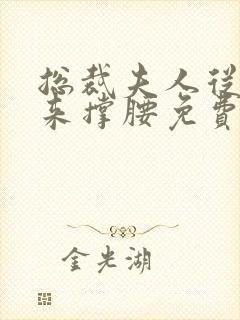 总裁夫人从
来撑腰免費
金光湖